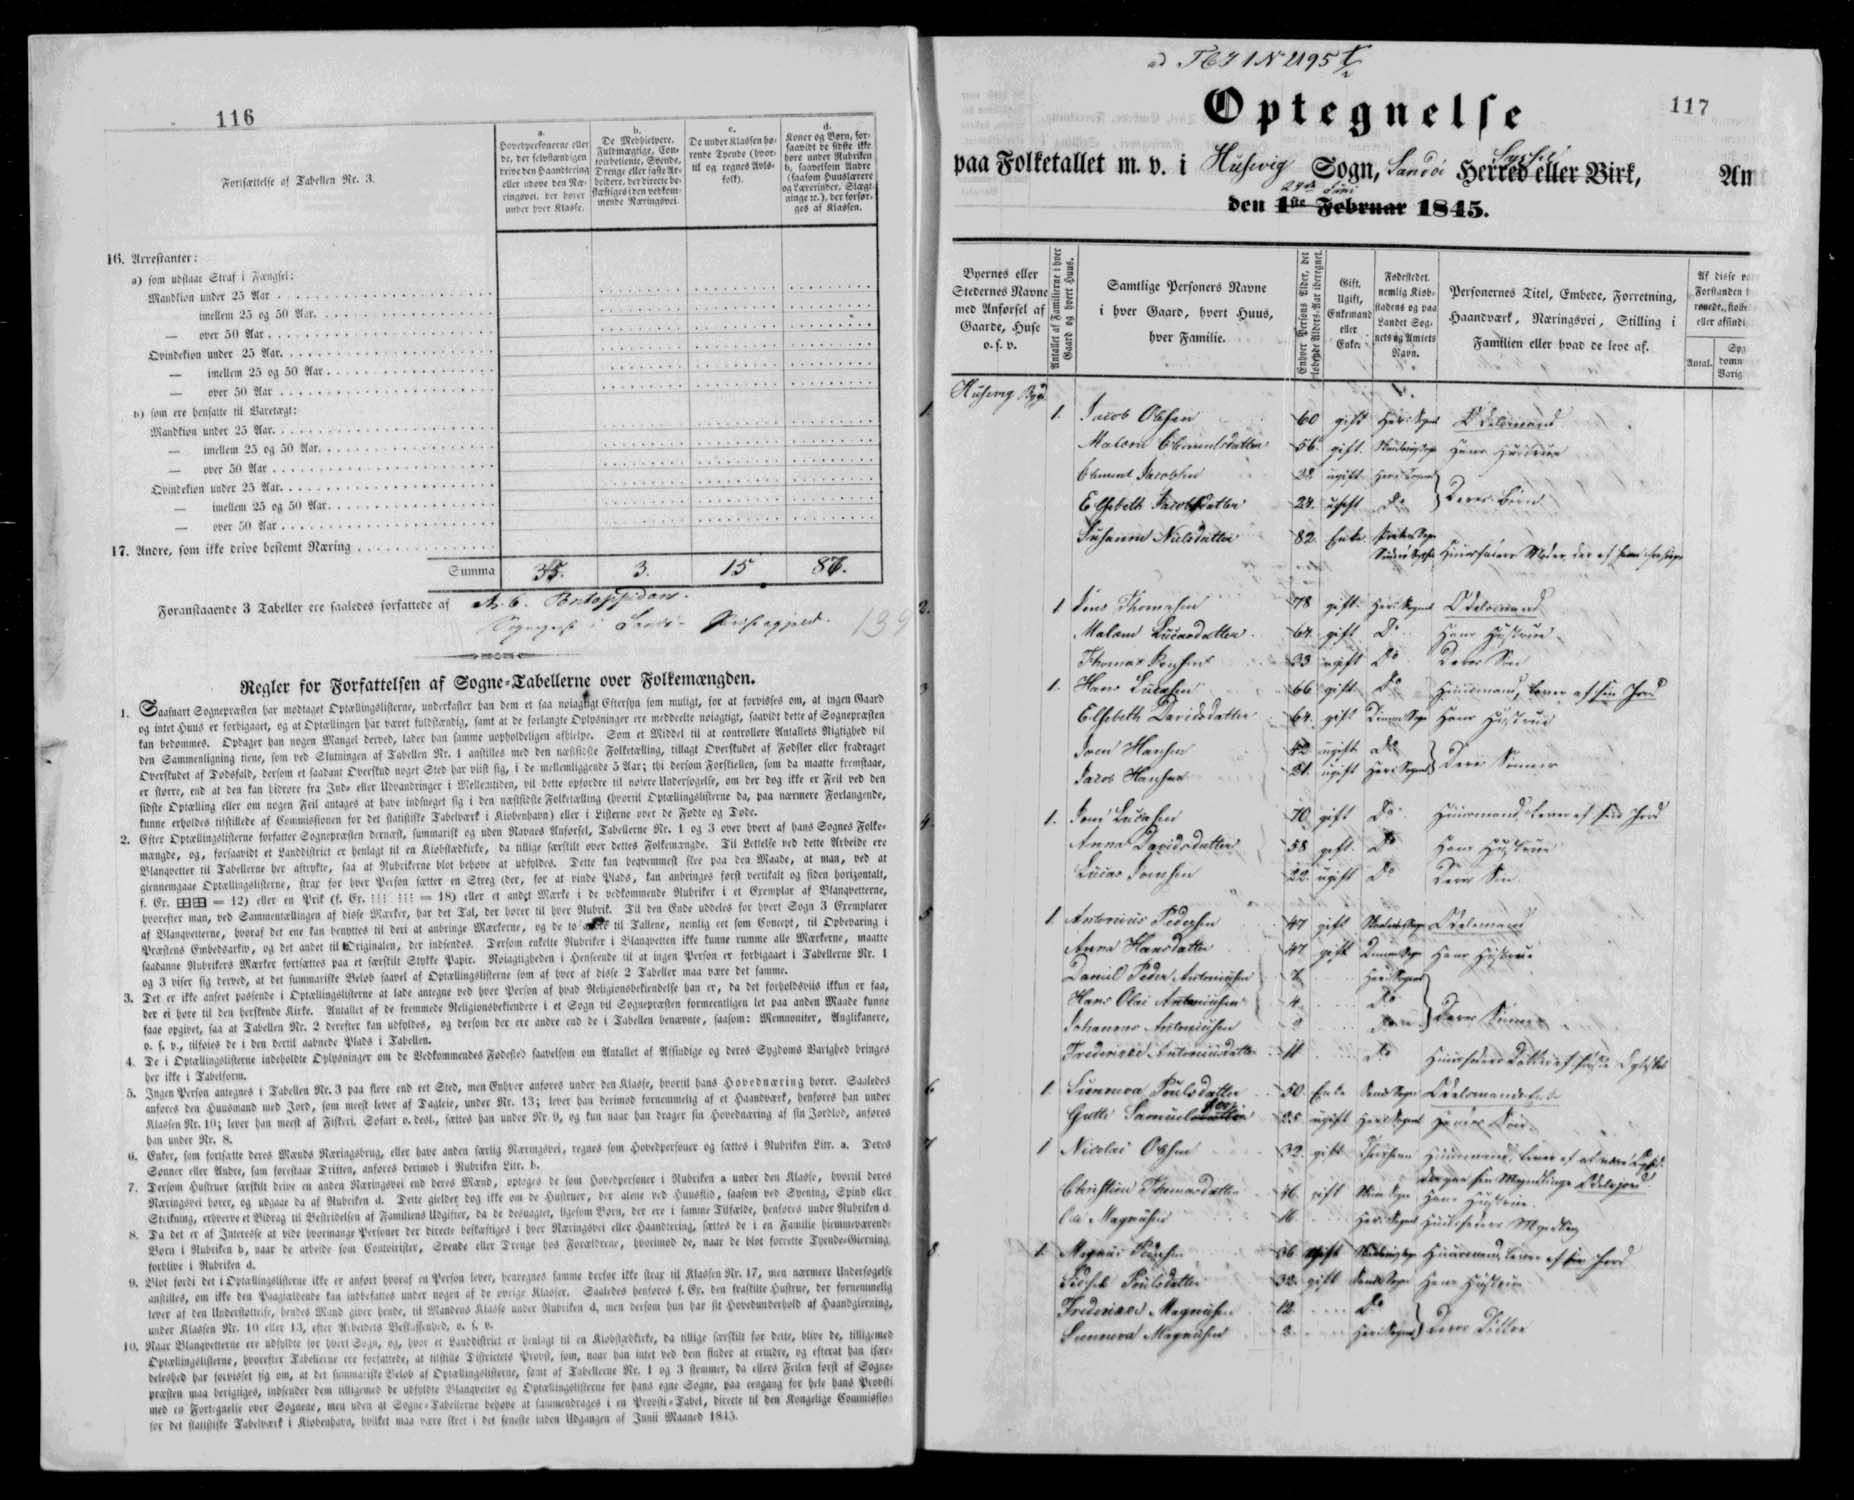 116
Fortsættelse af Tabellen Nr. 3.
a.
Hovedpersonerne eller
de, der selvstændigen
drive den Haandtering
eller udøve den Næ-
ringsvei, der hører
under hver Klasse.
b.
De Medhjelpere,
Fuldmægtige, Con-
toirbetiente, Svende,
Drenge eller faste Ar-
beidere, der directe be-
skæftiges i den vedkom-
mende Næringsvei.
c.
De under Klassen hø-
rende Tyende (hvor-
til og regnes Avls-
folk).
d.
Koner og Børn, for-
saavidt de sidste ikke
høre under Rubriken
b, saavelsom Andre
(saasom Huuslærere
og Lærerinder, Slægt-
ninge ic.), der forsør-
ges af Klassen.
16. Arrestanter:
a) som udstaae Straf i Fængsel:
Mandkion under 25 Aar
— imellem 25 og 50 Aar.
— over 50 Aar
Qvindekion under 25 Aar.
— imellem 25 og 50 Aar
— over 50 Aar
b) som ere hensatte til Varetægt:
Mandkion under 25 Aar.
— imellem 25 og 50 Aar.
— over 50 Aar
Qvindekion under 25 Aar.
— imellem 25 og 50 Aar.
— over 50 Aar
17. Andre, som ikke drive bestemt Næring
Summa 35. 3. 15 86.
Foranstaaende 3 Tabeller ere saaledes forfattede af A. C. Pontoppidan.
Sognepræst i Sandø Præstegjeld. 139
Regler for Forfattelsen af Sogne-Tabellerne over Folkemængden.
1. Saasnart Sognepræsten har modtaget Optællingslisterne, underkaster han dem et saa nøiagtigt Eftersyn som muligt, for at forvisses om, at ingen Gaard
og intet Huus er forbigaaet, og at Optællingen har været fuldstændig, samt at de forlangte Oplysninger ere meddeelte nøiagtigt, saavidt dette af Sognepræsten
kan bedømmes. Opdager han nogen Mangel derved, lader han samme uopholdeligen afhielpe. Som et Middel til at controllere Antallets Rigtighed vil
den Sammenligning tiene, som ved Slutningen af Tabellen Nr. 1 anstilles med den næstsidste Folketælling, tillagt Overskudet af Fødsler eller fradraget
Overskudet af Dødsfald, dersom et saadant Overskud noget Sted har viist sig, i de mellemliggende 5 Aar; thi dersom Forskiellen, som da maatte fremstaae,
er større, end at den kan hidrøre fra Ind- eller Udvandringer i Mellemtiden, vil dette opfordre til nøiere Undersøgelse, om der dog ikke er Feil ved den
sidste Optælling eller om nogen Feil antages at have indsneget sig i den næstsidste Folketælling (hvortil Optællingslisterne da, paa nærmere Forlangende,
kunne erholdes tilstillede af Commissionen for det statistiske Tabelværk i Kiøbenhavn) eller i Listerne over de Fødte og Døde.
2. Efter Optællingslisterne forfatter Sognepræsten dernæst, summarisk og uden Navnes Anførsel, Tabellerne Nr. 1 og 3 over hvert af hans Sognes Folke-
mængde, og, forsaavidt et Landdistrict er henlagt til en Kiøbstædkirke, da tillige særskilt over dettes Folkemængde. Til Lettelse ved dette Arbeide ere
Blanqvetter til Tabellerne her aftrykte, saa at Rubrikerne blot behøve at udfyldes. Dette kan beqvemmest skee paa den Maade, at man, ved at
giennemgaae Optællingslisterne, strax for hver Person sætter en Streg (der, for at vinde Plads, kan anbringes først vertikalt og siden horizontalt,
f. Ex. ⊞⊞ = 12) eller en Prik (f. Ex. ⁝⁝⁝ ⁝⁝⁝ = 18) eller et andet Mærke i de vedkommende Rubriker i et Exemplar af Blanqvetterne,
hvorefter man, ved Sammentællingen af disse Mærker, har det Tal, der hører til hver Rubrik. Til den Ende uddeles for hvert Sogn 3 Exemplarer
af Blanqvetterne, hvoraf det ene kan benyttes til deri at anbringe Mærkerne, og de to til Tallene, nemlig eet som Concept, til Opbevaring i
Præstens Embedsarkiv, og det andet til Originalen, der indsendes. Dersom enkelte Rubriker i Blanqvetten ikke kunne rumme alle Mærkerne, maatte
saadanne Rubrikers Mærker fortsættes paa et særskilt Stykke Papir. Nøiagtigheden i Henseende til at ingen Person er forbigaaet i Tabellerne Nr. 1
og 3 viser sig derved, at det summariske Beløb saavel af Optællingslisterne som af hver af disse 2 Tabeller maa være det samme.
3. Det er ikke anseet passende i Optællingslisterne at lade antegne ved hver Person af hvad Religionsbekiendelse han er, da det forholdsviis ikkun er faa,
der ei høre til den herskende Kirke. Antallet af de fremmede Religionsbekiendere i et Sogn vil Sognepræsten formeentligen let paa anden Maade kunne
faae opgivet, saa at Tabellen Nr. 2 derefter kan udfyldes, og dersom der ere andre end de i Tabellen benævnte, saasom: Memnoniter, Anglikanere,
o. s. v., tilføies de i den dertil aabnede Plads i Tabellen.
4. De i Optællingslisterne indeholdte Oplysninger om de Vedkommendes Fødested saavelsom om Antallet af Afsindige og deres Sygdoms Varighed bringes
her ikke i Tabelform.
5. Ingen Person antegnes i Tabellen Nr. 3 paa flere end eet Sted, men Enhver anføres under den Klasse, hvortil hans Hovednæring hører. Saaledes
anføres den Huusmand med Jord, som meest lever af Dagleie, under Nr. 13; lever han derimod fornemmelig af et Haandværk, henføres han under
Klassen Nr. 10; lever han meest af Fiskeri, Søfart o. desl., sættes han under Nr. 9, og kun naar han drager sin Hovednæring af sin Jordlod, anføres
han under Nr. 8.
6. Enker, som fortsætte deres Mænds Næringsbrug, eller have anden særlig Næringsvei, regnes som Hovedpersoner og sættes i Rubriken Litr. a. Deres
Sønner eller Andre, som forestaae Driften, anføres derimod i Rubriken Litr. b.
7. Dersom Hustruer særskilt drive en anden Næringsvei end deres Mænd, optages de som Hovedpersoner i Rubriken a under den Klasse, hvortil deres
Næringsvei hører, og udgaae da af Rubriken d. Dette gielder dog ikke om de Hustruer, der alene ved Huusflid, saasom ved Syening, Spind eller
Strikning, erhverve et Bidrag til Bestridelsen af Familiens Udgifter, da de desuagtet, ligesom Børn, der ere i samme Tilfælde, henføres under Rubriken d.
8. Da det er af Interesse at vide hvormange Personer der directe beskæftiges i hver Næringsvei eller Haandtering, sættes de i en Familie hiemmeværende
Børn i Rubriken b, naar de arbeide som Contoirister, Svende eller Drenge hos Forældrene, hvorimod de, naar de blot forrette Tyende-Gierning,
forblive i Rubriken d.
9. Blot fordi det i Optællingslisterne ikke er anført hvoraf en Person lever, henregnes samme derfor ikke strax til Klassen Nr. 17, men nærmere Undersøgelse
anstilles, om ikke den Paagiældende kan indbefattes under nogen af de øvrige Klasser. Saaledes henføres f. Ex. den fraskilte Hustrue, der fornemmelig
lever af den Understøttelse, hendes Mand giver hende, til Mandens Klasse under Rubriken d, men dersom hun har sit Hovedunderhold af Haandgierning,
under Klassen Nr. 10 eller 13, efter Arbeidets Beskaffenhed, o. s. v.
10. Naar Blanqvetterne ere udfyldte for hvert Sogn, og, hvor et Landdistrict er henlagt til en Kiøbstædkirke, da tillige særskilt for dette, blive de, tilligemed
Optællingslisterne, hvorefter Tabellerne ere forfattede, at tilstille Districtets Provst, som, naar han intet ved dem finder at erindre, og efterat han især-
deleshed har forvisset sig om, at det summariske Beløb af Optællingslisterne, samt af Tabellerne Nr. 1 og 3 stemmer, da ellers Feilen først af Sogne-
præsten maa berigtiges, indsender dem tilligemed de udfyldte Blanqvetter og Optællingslisterne for hans egne Sogne, paa eengang for hele hans Provsti
med en Fortegnelse over Sognene, men uden at Sogne-Tabellerne behøve at sammendrages i en Provsti-Tabel, directe til den Kongelige Commission
for det statistiske Tabelværk i Kiøbenhavn, hvilket maa være skeet i det seneste inden Udgangen af Junii Maaned 1845.
117
Optegnelse
paa Folketallet m. v. i Husevig Sogn, Sandø Syssel Herred eller Birk, Amt
24de Juni
den 1ste Februar 1845.
Byernes eller
Stedernes Navne
med Anførsel af
Gaarde, Huse
o. s. v.
Antallet af Familierne i hver
Gaard og hvert Huus.
Samtlige Personers Navne
i hver Gaard, hvert Huus,
hver Familie.
Enhver Persons Alder, det
løbende Alders-Aar iberegnet.
Gift,
Ugift,
Enkemand
eller
Enke.
Fødestedet,
nemlig Kiøb-
stadens og paa
Landet Sog-
nets og Amtets
Navn.
Personernes Titel, Embede, Forretning,
Haandværk, Næringsvei, Stilling i
Familien eller hvad de leve af.
Antal.
Husevig Bygd
1. 1. Jacob Olesen 60 gift Her i Sognet Odelsmand
Malene Clementsdatter 56 gift Hans Hustrue
Clement Jacobsen 32 ugift Her i Sognet
Elsebeth Jacobsdatter 24 ugift Do Deres Børn
Susanne Nielsdatter 82 Enke
2. 1 Jens Thomasen 78 gift Her i Sognet Odelsmand
Malene Lucasdatter 64 gift Do Hans Hustrue
Thomas Jensen 33 ugift Do Deres Søn
3 1. Hans Lucasen 66 gift Do Huusmand, lever af sin Jord
Elsebeth Davidsdatter 64 gift Hans Hustrue
Joen Hansen 42 ugift Do
Jacob Hansen 21 ugift Her i Sognet Deres Sønner
4. 1. Joen Lucasen 70 gift Do Huusmand, lever af sin Jord
Anna Davidsdatter 58 gift Do Hans Hustrue
Lucas Joensen 22 ugift Do Deres Søn
5 1. Antonius Pedersen 47 gift Odelsmand
Anna Hansdatter 47 gift Hans Hustrue
Daniel Peder Antoniusen 7 Her i Sognet
Hans Olai Antoniusen 4 Do
Johannes Antoniusen Deres Sønner
Frederikke Antoniusdatter 11 Do
6 1. Sunneva Poulsdatter 50 Enke Odelsmands Enke
Gutti Samuelsen 25 ugift Her i Sognet Hendes Søn
7 1 Nicolai Olesen 32 gift
Christine Thomasdatter 46 gift Hans Hustrue
Ole Magnusen 16 Her i Sognet
8 1. Magnus Pedersen 36 gift Huusmand, lever af sin Jord
Poulsdatter 32 gift Hans Hustrue
Frederikke Magnusen 12 Do
Sunneva Magnusen Her i Sognet Deres Døttre